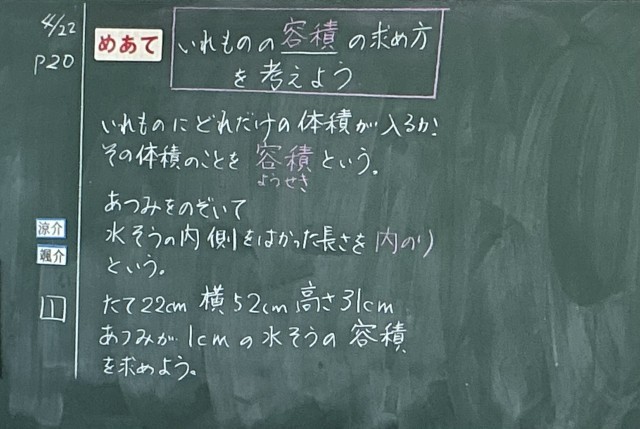 4/22
P20
めあて
いれものの容積の求め方
を考えよう
いれものにどれだけの体積が入るか!
その体積のことを容積という。
ようせき
あつみをのぞいて
水そうの内側をはかった長さを内のり
という。
涼介
颯介
1
たて22cm 横52cm 高さ31cm
あつみが1cmの水そうの容積
を求めよう。